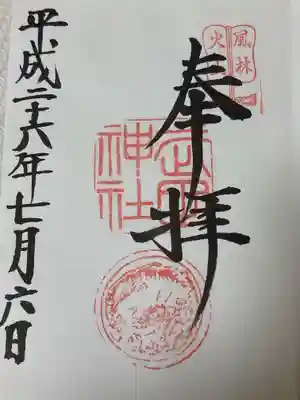 風林
火
奉拝
武田神社
平成二十六年七月六日